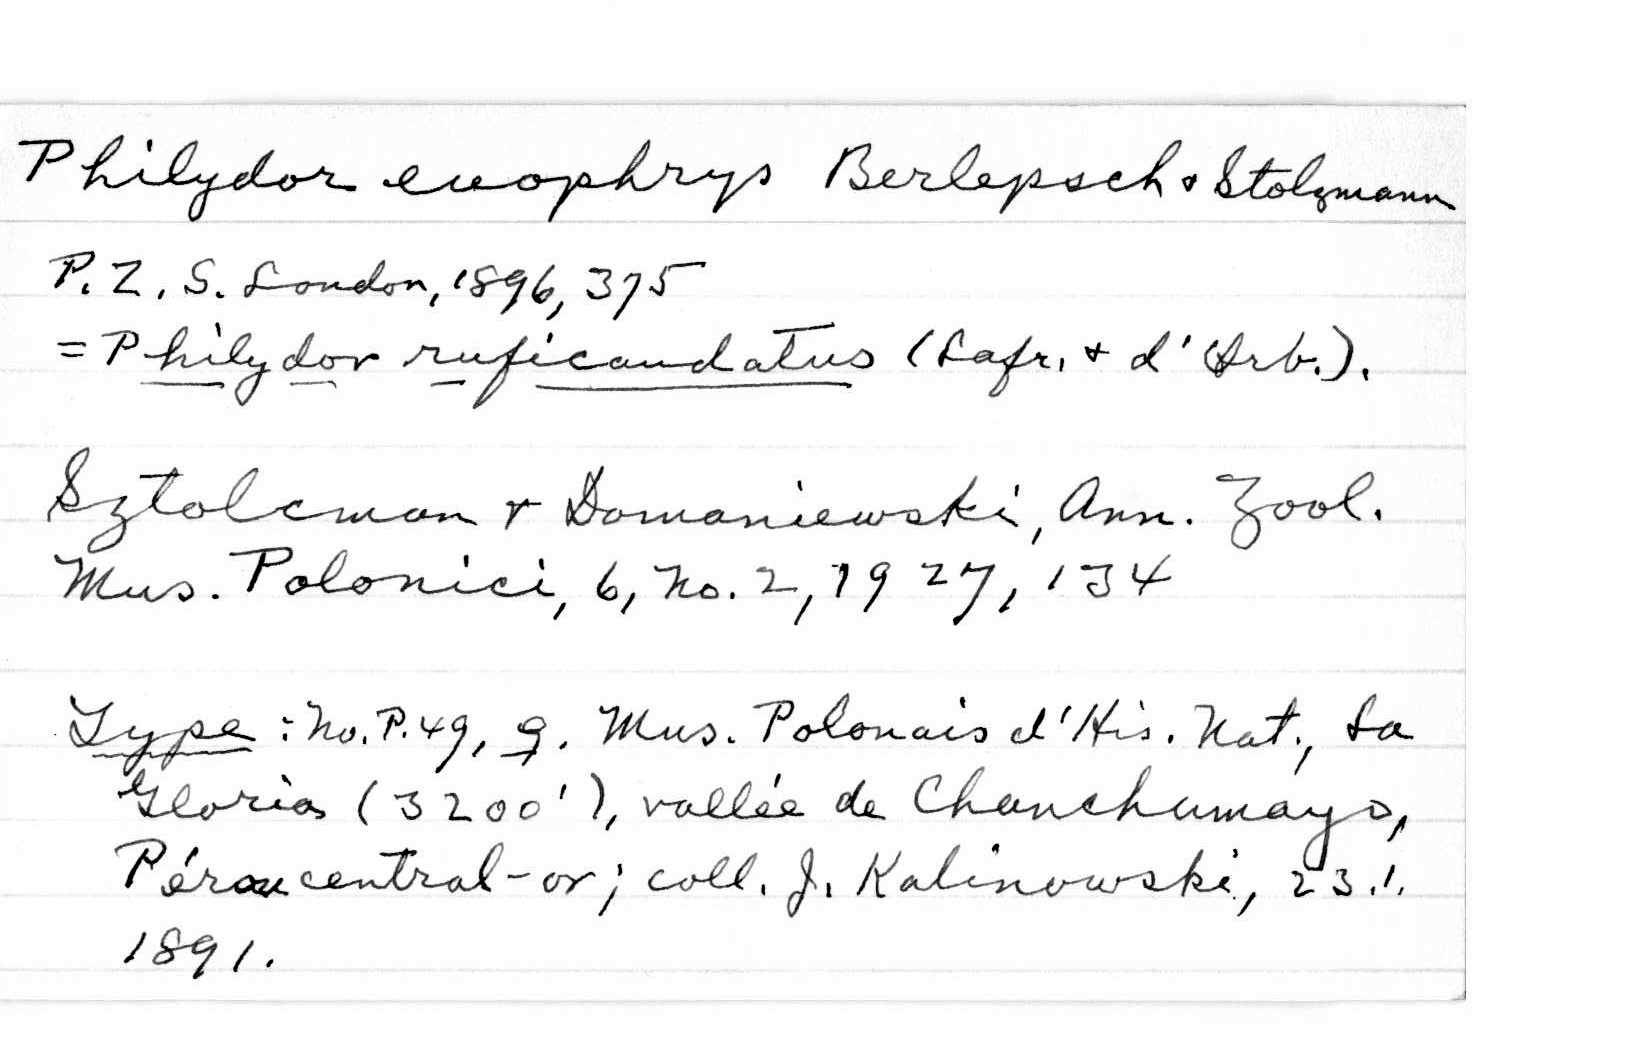 Philydor euophrys Berlepsch & Stolzmann
P. Z. S. London, 1896, 375
= Philydor ruficaudatus (Lafr. & d'Orb.).
Sztolcman & Domaniewski, Ann. Zool.
Mus. Polonici, 6, No. 2, 1927, 134
Type: No. P. 49, ♀. Mus. Polonais d'His. Nat., La
Gloria (3200'), vallée de Chanchumayo,
Pérou central-or; coll. J. Kalinowski, 23.1.
1891.